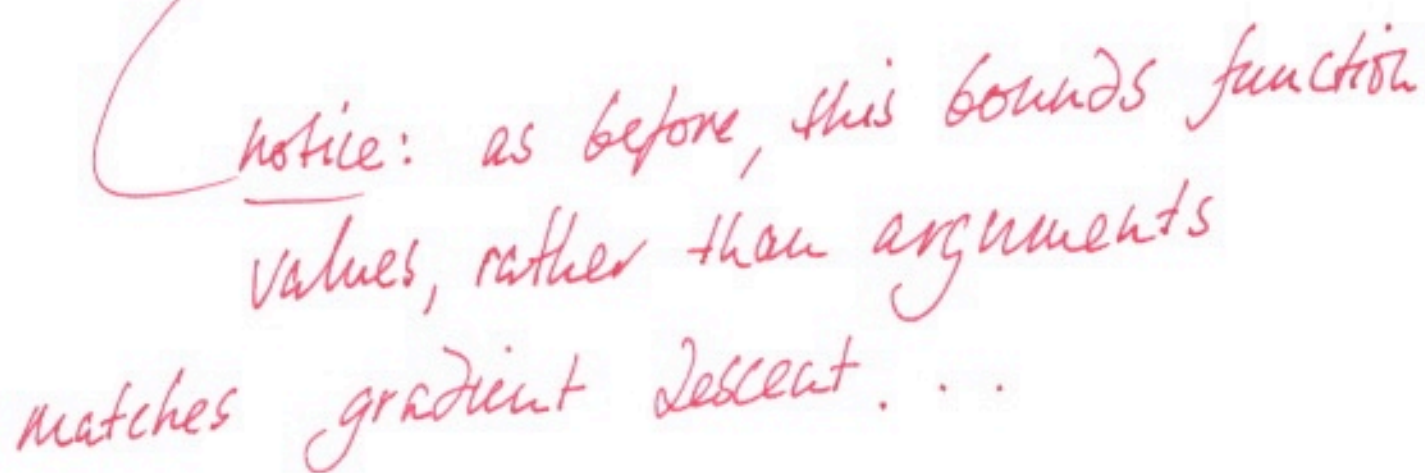 notice: as before, this bounds function
values, rather than arguments
matches gradient descent...